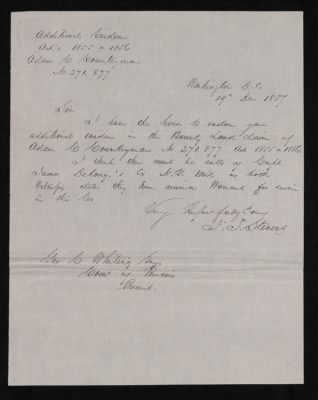 Additional Evidence
Act, 1855 & 1856
Adam C. Countryman
No 270.877
Washington D.C.
19th Dec 1857
Sir
I have the honor to enclose you
additional evidence in the Bounty Land claim of
Adam C Countryman No 270.877 Act 1855 & 1856
I think there must be rolls of Capt
James Delong's Co N.Y. Mil as both
Witnesses states they have Warrants for service
in this Co
Very Respectfully Yours
Stevens
Geo C Whiting Esq
Com of Pensions
Present